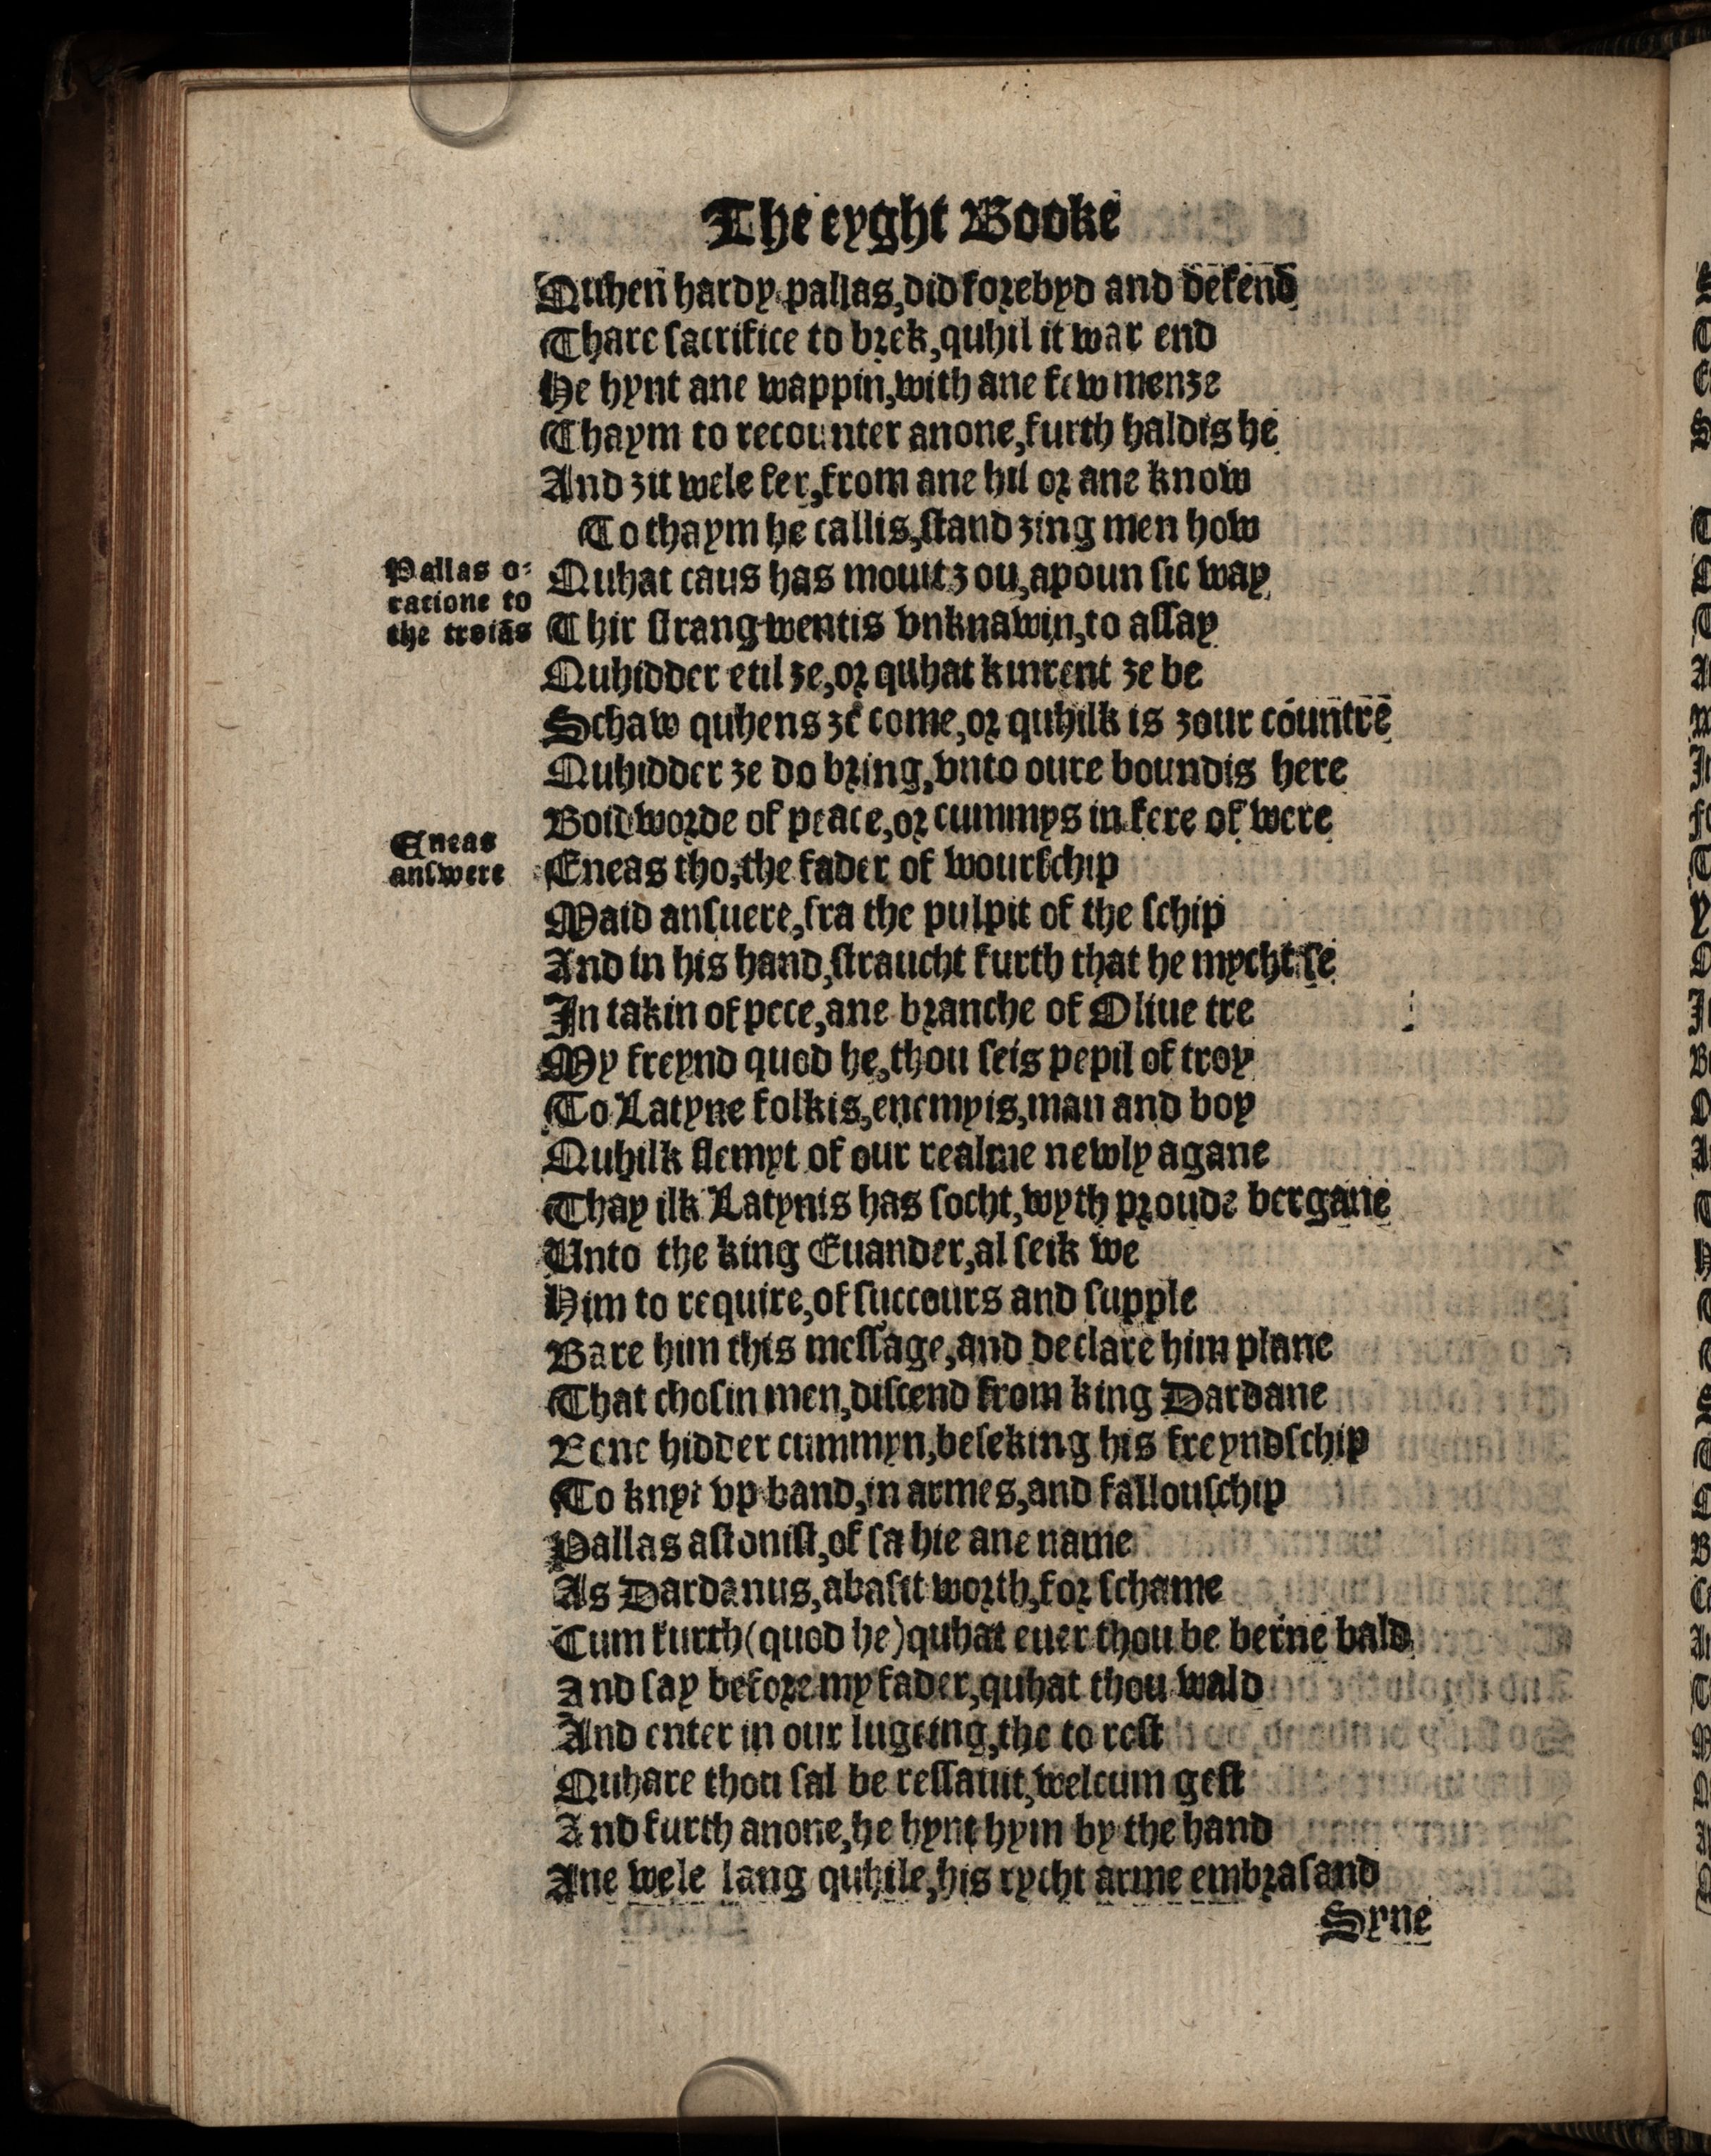 The eyght Booke
Quhen hardy pallas, did forebyd and defend
Thare sacrifice to brek, quhil it war end
He hynt ane wappin, with ane few menze
Thaym to recounter anone, furth haldis he
And zit wele fer, from ane hil or ane know
To thaym he callis, stand zing men how
Pallas o-
ratione to
the troiās
Quhat caus has mouit zou, apoun sic way
Thir strang wentis vnknawin, to assay
Quhidder etil ze, or quhat kinrent ze be
Schaw quhens ze come, or quhilk is zour countre
Quhidder ze do bring, vnto oure boundis here
Boidworde of peace, or cummys in fere of were
Eneas
answere
Eneas tho, the fader of wourschip
Maid ansuere, fra the pulpit of the schip
And in his hand, straucht furth that he mycht se
In takin of pece, ane branche of Oliue tre
My freynd quod he, thou seis pepil of troy
To Latyne folkis, enemyis, man and boy
Quhilk flemyt of our realme newly agane
Thay ilk Latynis has socht, wyth proude bergane
Unto the king Euander, al seik we
Him to require, of succours and supple
Bare him this message, and declare him plane
That chosin men, discend from king Dardane
Bene hidder cummyn, beseking his freyndschip
To knyt vp band, in armes, and fallouschip
Pallas astonist, of sa hie ane name
As Dardanus, abasit worth, for schame
Cum furth (quod he) quhat euer thou be berne bald
And say before my fader, quhat thou wald
And enter in our lugeing, the to rest
Quhare thou sal be ressauit, welcum gest
And furth anone, he hynt hym by the hand
Ane wele lang quhile, his rycht arme embrasand
Syne